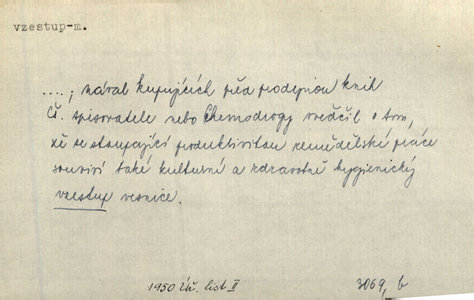 vzestup-m.
...., nával kupujících před prodejnou knih
Čs. spisovatele nebo Chemodrogy svědčil o tom,
že se stoupající produktivitou zemědělské práce
souvisí také kulturní a zdravotně hygienický
vzestup vesnice.
1950 Lit. list II
3069, b